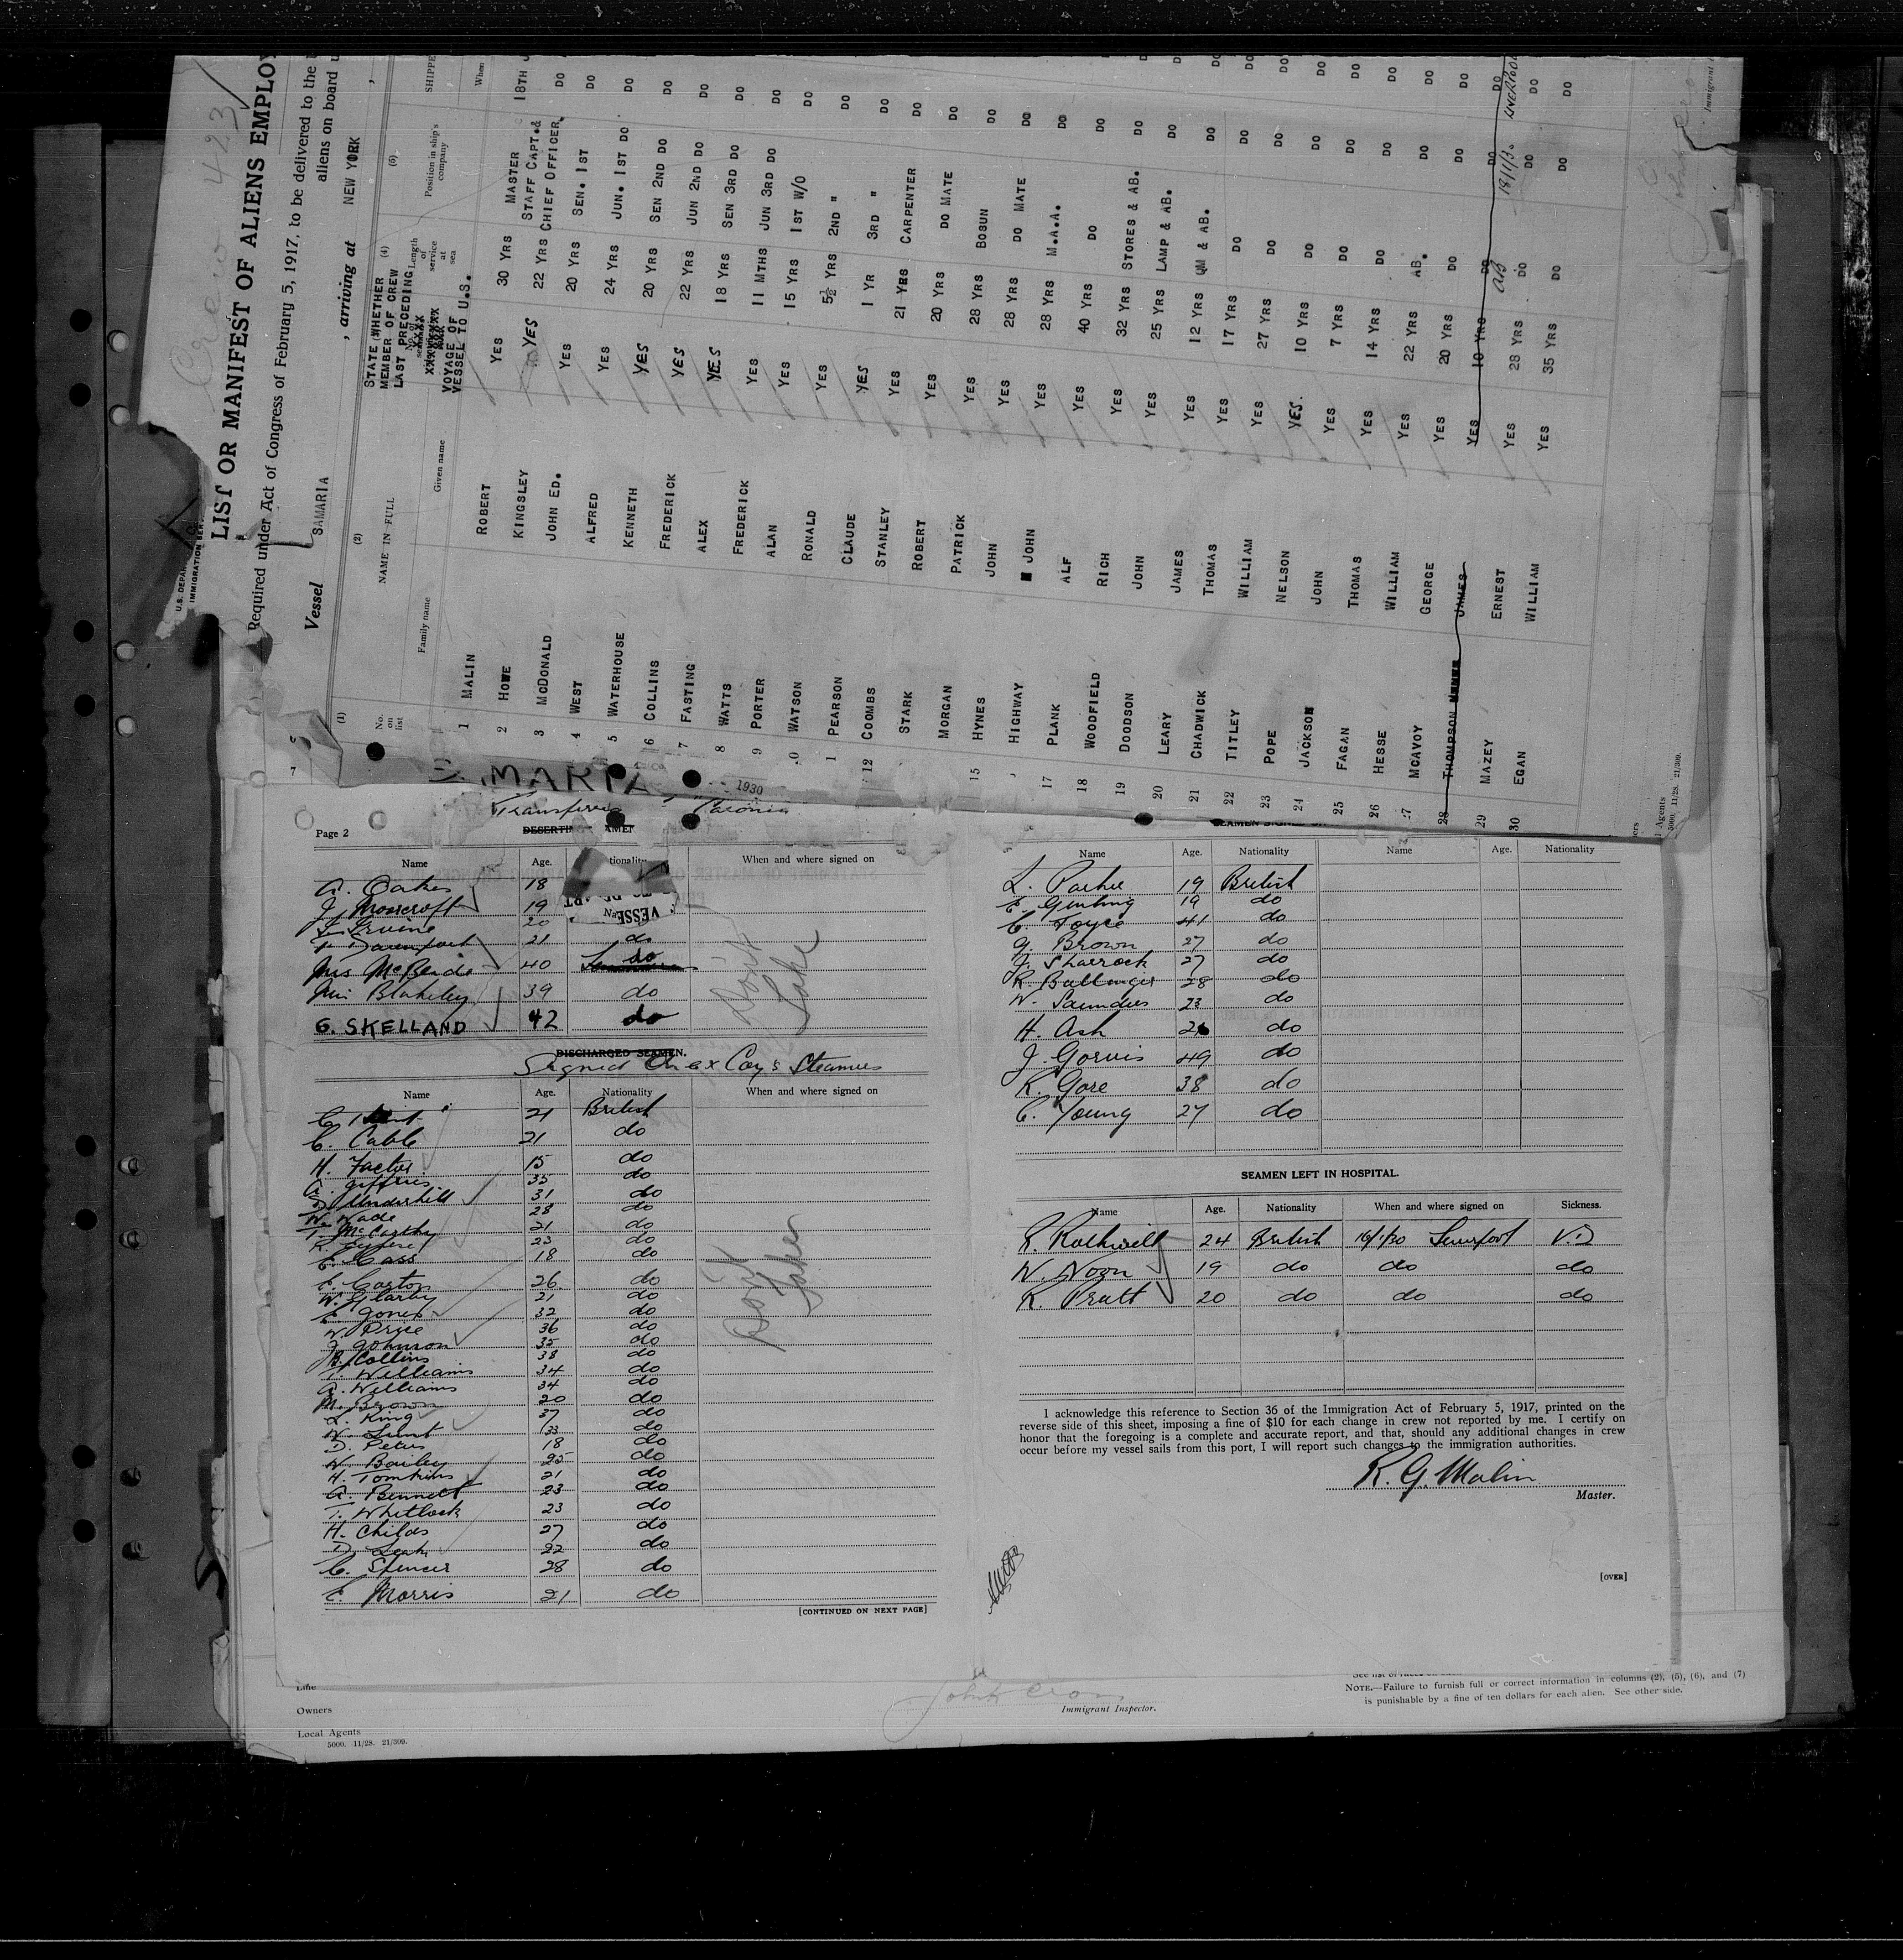 Crew 423
LIST OR MANIFEST OF ALIENS EMPLOY
Required under Act of Congress of February 5, 1917, to be delivered to the
aliens on board
Vessel SAMARIA , arriving at NEW YORK ,
U.S. DEPAR
IMMIGRATION SER
(1) (2) (4) (5)
No. on list
NAME IN FULL
Family name Given name
STATE WHETHER MEMBER OF CREW LAST PRECEDING VOYAGE OF VESSEL TO U.S.
Length of service at sea
Position in ship's company
SHIPPE
When
1 MALIN ROBERT YES 30 YRS MASTER 18TH J
2 HOWE KINGSLEY YES 22 YRS STAFF CAPT.& CHIEF OFFICER. DO
3 McDONALD JOHN ED. YES 20 YRS SEN. 1ST DO
4 WEST ALFRED YES 24 YRS JUN. 1ST DO DO
5 WATERHOUSE KENNETH YES 20 YRS SEN 2ND DO DO
6 COLLINS FREDERICK YES 22 YRS JUN 2ND DO DO
7 FASTING ALEX YES 18 YRS SEN 3RD DO DO
8 WATTS FREDERICK YES 11 MTHS JUN 3RD DO DO
9 PORTER ALAN YES 15 YRS 1ST W/O DO
0 WATSON RONALD YES 5½ YRS 2ND " DO
1 PEARSON CLAUDE YES 1 YR 3RD " DO
12 COOMBS STANLEY YES 21 YRS CARPENTER DO
STARK ROBERT YES 20 YRS DO MATE DO
MORGAN PATRICK YES 28 YRS BOSUN DO
15 HYNES JOHN YES 28 YRS DO MATE DO
HIGHWAY JOHN YES 28 YRS M.A.A. DO
17 PLANK ALF YES 40 YRS DO DO
18 WOODFIELD RICH YES 32 YRS STORES & AB. DO
19 DOODSON JOHN YES 25 YRS LAMP & AB. DO
20 LEARY JAMES YES 12 YRS QM & AB. DO
21 CHADWICK THOMAS YES 17 YRS DO DO
22 TITLEY WILLIAM YES 27 YRS DO DO
23 POPE NELSON YES. 10 YRS DO DO
24 JACKSON JOHN YES 7 YRS DO DO
25 FAGAN THOMAS YES 14 YRS DO DO
26 HESSE WILLIAM YES 22 YRS AB. DO
27 MCAVOY GEORGE YES 20 YRS DO DO
28 THOMPSON JAMES YES 10 YRS DO DO
AB 18/1/30 LIVERPOOL
29 MAZEY ERNEST YES 28 YRS DO DO
30 EGAN WILLIAM YES 35 YRS DO DO
7
MARIA
1930
Page 2
DESERTIN AMEN
Name Age. tionality When and where signed on
VESSE
A. Oakes 18
J. Moorcroft 19
Irvine 20
F. Davenport 21 do
Mrs McBride 40 do
Miss Blakeley 39 do
G. SKELLAND 42 do
Don't Take
DISCHARGED SEAMEN.
Signed On ex Coy's Steamers
Name Age. Nationality When and where signed on
C. 21 British
C. Cable 21 do
H. Factor 15 do
A. Jeffries 35 do
Underhill 31 do
W. Wade 28 do
T. McCarthy 21 do
R. 23 do
C. Cass 18 do
E. Garton 26 do
W. Glarby 21 do
E. Jones 32 do
W. Price 36 do
J. Johnson 35 do
Collins 38 do
T. Williams 34 do
A. Williams 34 do
M. Brown 20 do
L. King 37 do
W. Lunt 33 do
D. Peters 18 do
W. Bailey 25 do
H. Tomkins 21 do
A. Bennett 23 do
T. Whitlock 23 do
H. Childs 27 do
D. Leak 22 do
C. Spencer 28 do
E. Morris 21 do
Don't Take
[CONTINUED ON NEXT PAGE]
Name Age. Nationality Name Age. Nationality
L. Parker 19 British
E. Gunting 19 do
C. Joyce 41 do
G. Brown 27 do
J. Sharrock 27 do
R. Ballinger 28 do
W. Saunders 23 do
H. Ash 26 do
J. Gorvis 49 do
R. Gore 38 do
C. Young 27 do
SEAMEN LEFT IN HOSPITAL.
Name Age. Nationality When and where signed on Sickness.
Rothwell 24 British 16/1/30 Liverpool V.D
W. Noon 19 do do do
R. Pratt 20 do do do
I acknowledge this reference to Section 36 of the Immigration Act of February 5, 1917, printed on the
reverse side of this sheet, imposing a fine of $10 for each change in crew not reported by me. I certify on
honor that the foregoing is a complete and accurate report, and that, should any additional changes in crew
occur before my vessel sails from this port, I will report such changes to the immigration authorities.
R. G. Malin
Master.
[OVER]
Line
Owners
Local Agents
5000. 11/28. 21/309.
Immigrant Inspector.
NOTE.—Failure to furnish full or correct information in columns (2), (5), (6), and (7)
is punishable by a fine of ten dollars for each alien. See other side.